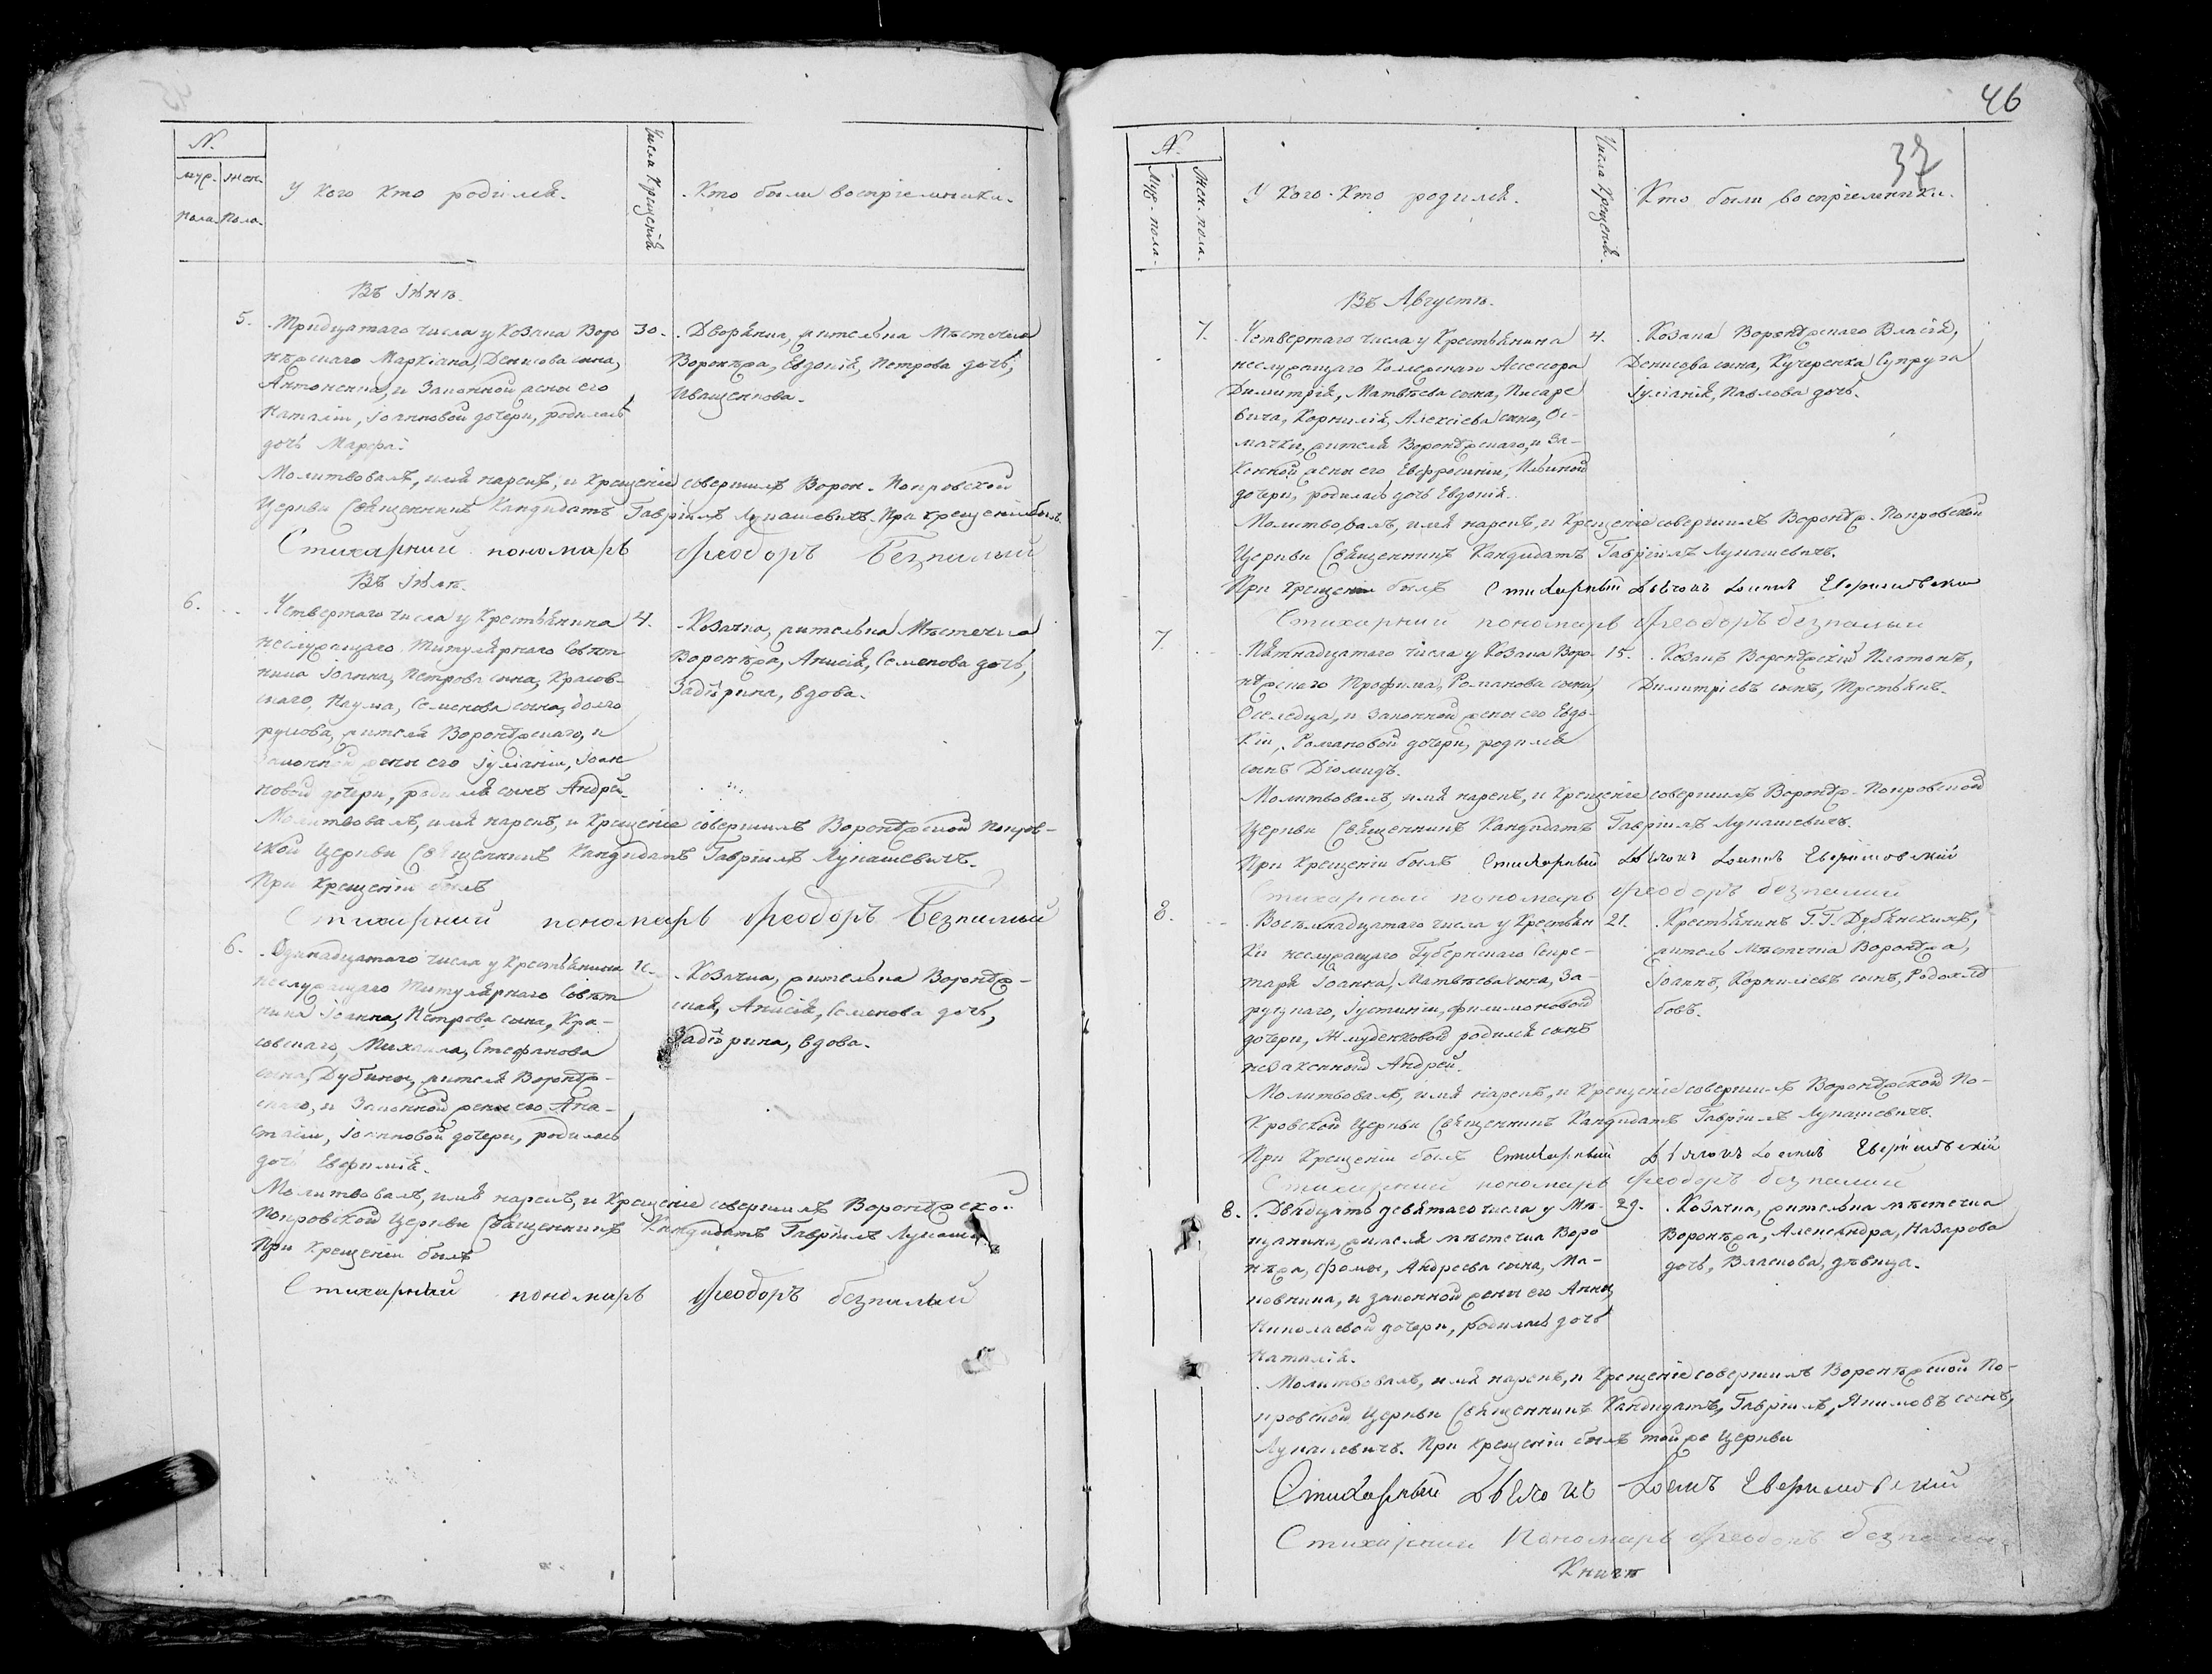 N.
муж. жен.
пола. пола.
У кого кто родился.
Числа Крещенія
Кто были воспріемники.
Въ Іюнѣ.
5. Тридцатаго числа у Козака Воро
нѣжскаго Маркіана, Денисова сына,
Антоненка, и Законной жены его
Наталіи, Іоанновой дочери, родилась
дочь Марфа.
30.
Дворянка, жителька Мѣстечка
Воронѣжа, Евдокія, Петрова дочь,
Иващенкова.
Молитвовалъ, имя нарекъ, и Крещеніе совершилъ Ворон. Покровской
Церкви Священникъ Кандидатъ Гавріилъ Лукашевичъ. При крещеніи былъ.
Стихарний пономарь Феодоръ Безпалый
Въ Іюлѣ.
6. Четвертаго числа у Крестьянина
неслужащаго Титулярнаго Совѣт
ника Іоанна, Петрова сына, Красов-
скаго, Наума, Семенова сына, Долго
рукова, жителя Воронѣжскаго, и
Законной жены его Іуліаніи, Іоан
новой дочери, родился сынъ Андрей.
4.
Козачка, жителька Мѣстечка
Воронѣжа, Анисія, Семенова дочь,
вдова.
Молитвовалъ, имя нарекъ, и Крещеніе совершилъ Воронѣжской Покров-
ской Церкви Священникъ Кандидатъ Гавріилъ Лукашевичъ.
При Крещеніи былъ
Стихарний пономарь Феодоръ Безпалый
6. Одинадцатаго числа у Крестьянина
неслужащаго Титулярнаго Совѣт
ника Іоанна, Петрова сына, Кра-
совскаго, Михаила, Стефанова
сына, Дубины, жителя Воронѣж-
скаго, и Законной жены его Ана-
стасіи, Іоанновой дочери, родилась
дочь Евфимія.
Козачка, жителька Воронѣж-
ская, Анисія, Семенова дочь,
вдова.
Молитвовалъ, имя нарекъ, и Крещеніе совершилъ Воронѣжской
Покровской Церкви Священникъ Кандидатъ Гавріилъ
При Крещеніи былъ
Стихарный пономарь Феодоръ безпалый
46
37
N.
Муж. пола.
Жен. пола.
У кого кто родился.
Числа Крещенія.
Кто были воспріемники.
Въ Августѣ.
7. Четвертаго числа у Крестьянина
неслужащаго Коллежскаго Асессора
Димитрія, Матвѣева сына, Писаре
вича, Корнилія, Алексіева сына, Ос-
мачки, жителя Воронѣжскаго, и За-
конной жены его Евфросиніи, Ильиной
дочери, родилась дочь Евдокія.
4.
Козака Воронѣжскаго Власія,
Денисова сына, Кучеренка Супруга
Іуліанія, Павлова дочь.
Молитвовалъ, имя нарекъ, и Крещеніе совершилъ Воронѣж. Покровской
Церкви Священникъ Кандидатъ Гавріилъ Лукашевичъ.
При Крещеніи былъ Стихарный Дьячокъ
Стихарний пономарь Феодоръ безпалый
7. Пятнадцатаго числа у Козака Воро-
нѣжскаго Трофима, Романова сына,
Оселедца, и Законной жены его Евдо-
кіи, Романовой дочери, родился
сынъ Діомидъ.
15.
Козакъ Воронѣжскій Платонъ,
Димитріевъ сынъ, Третьякъ.
Молитвовалъ, имя нарекъ, и Крещеніе совершилъ Воронѣж. Покровской
Церкви Священникъ Кандидатъ Гавріилъ Лукашевичъ.
При Крещеніи былъ Стихарный Дьячокъ
Стихарный пономарь Феодоръ безпалый
8. Восемнадцатаго числа у Крестьян
ки неслужащаго Губернскаго Секре-
таря Іоанна, Матвѣева сына, За-
Іустиніи, Филимоновой
дочери, Жмуденковой родился сынъ
незаконный Андрей.
21.
Крестьянинъ Г.Г. Дубянскихъ,
житель Мѣстечка Воронѣжа,
Іоаннъ, Корниліевъ сынъ,
Молитвовалъ, имя нарекъ, и Крещеніе совершилъ Воронѣжской По-
кровской Церкви Священникъ Кандидатъ Гавріилъ Лукашевичъ.
При Крещеніи былъ Стихарный Дьячокъ
Стихарный пономарь Феодоръ безпалый
8. Двадцать девятаго числа у Мѣ-
щанина, жителя мѣстечка Воро
нѣжа, Фомы, Андреева сына, Ма-
ковкина, и законной жены его Анны,
Николаевой дочери, родилась дочь
Наталія.
29.
Козачка, жителька мѣстечка
Воронѣжа, Александра, Назарова
дочь, Власкова, дѣвица.
Молитвовалъ, имя нарекъ, и Крещеніе совершилъ Воронѣжской По-
кровской Церкви Священникъ Кандидатъ, Гавріилъ, Якимовъ сынъ,
Лукашевичъ. При крещеніи былъ тойже Церкви
Стихарный Дьячокъ
Стихарный Пономарь Феодоръ безпалый
Книгѣ